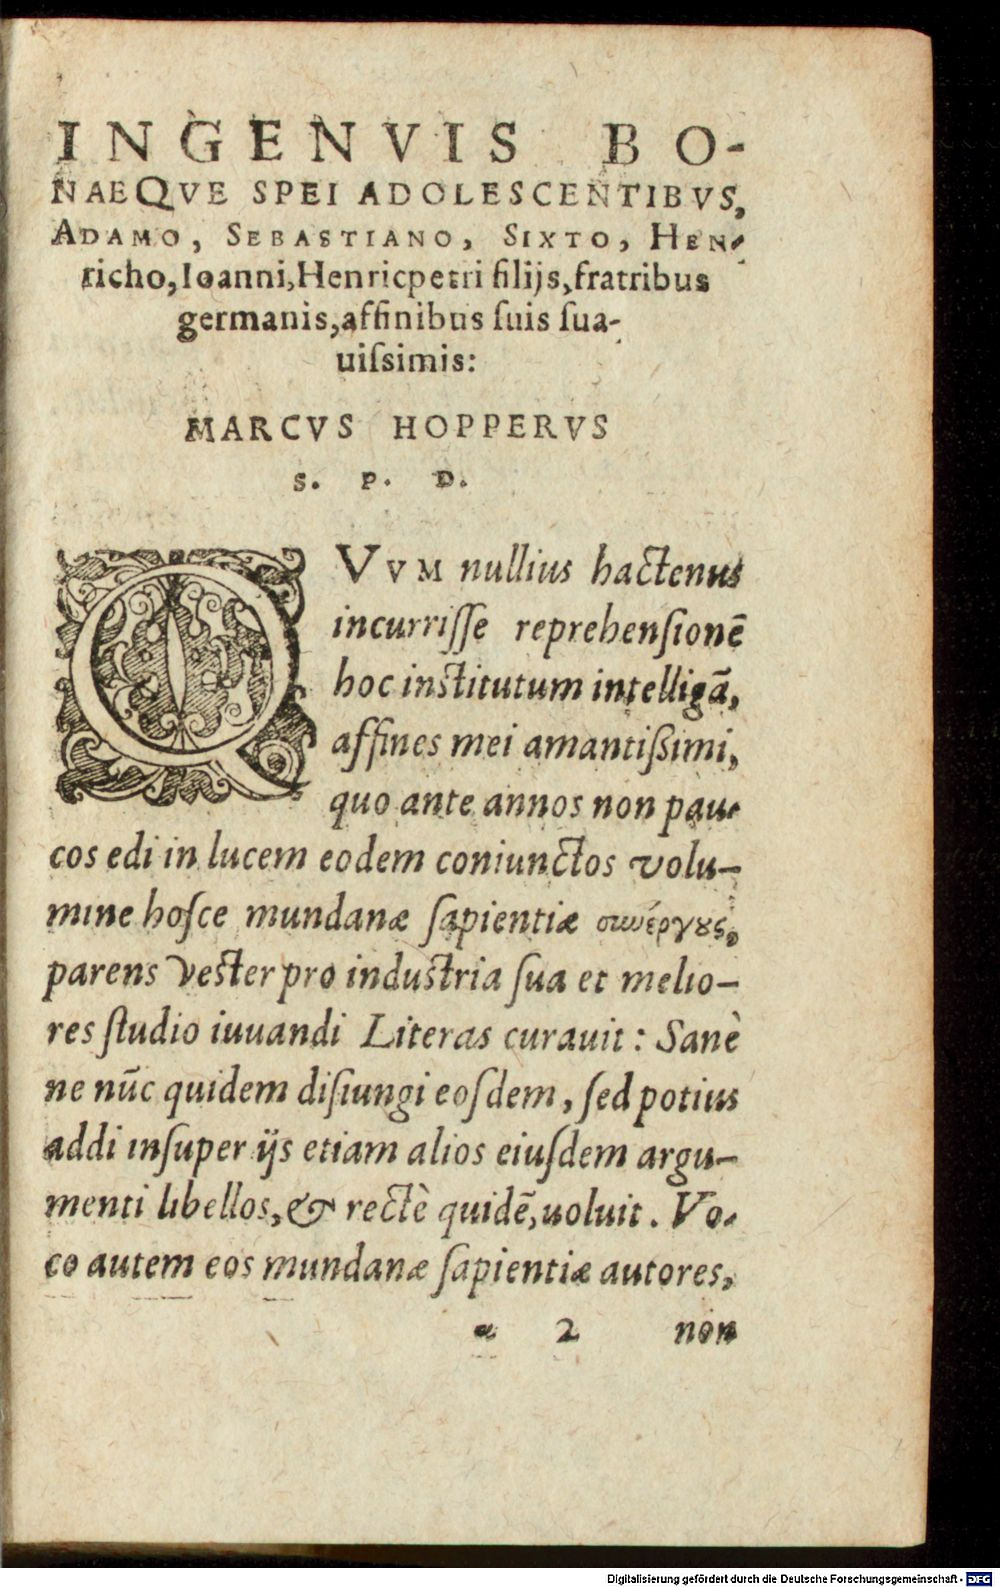 INGENVIS BO-
NAEQVE SPEI ADOLESCENTIBVS,
ADAMO, SEBASTIANO, SIXTO, HEN-
richo, Ioanni, Henricpetri filijs, fratribus
germanis, affinibus ſuis ſua-
uiſsimis:
MARCVS HOPPERVS
S. P. D.
QVVM nullius hactenus
incurriſſe reprehenſionē
hoc inſtitutum intelligā,
affines mei amantißimi,
quo ante annos non pau-
cos edi in lucem eodem coniunctos volu-
mine hoſce mundanæ ſapientiæ συνέργȣς,
parens veſter pro induſtria ſua et melio-
res ſtudio iuuandi Literas curauit: Sanè
ne nūc quidem diſiungi eoſdem, ſed potius
addi inſuper ijs etiam alios eiuſdem argu-
menti libellos, & rectè quidē, uoluit. Vo-
co autem eos mundanæ ſapientiæ autores,
a 2 non
Digitalisierung gefördert durch die Deutsche Forschungsgemeinschaft - DFG